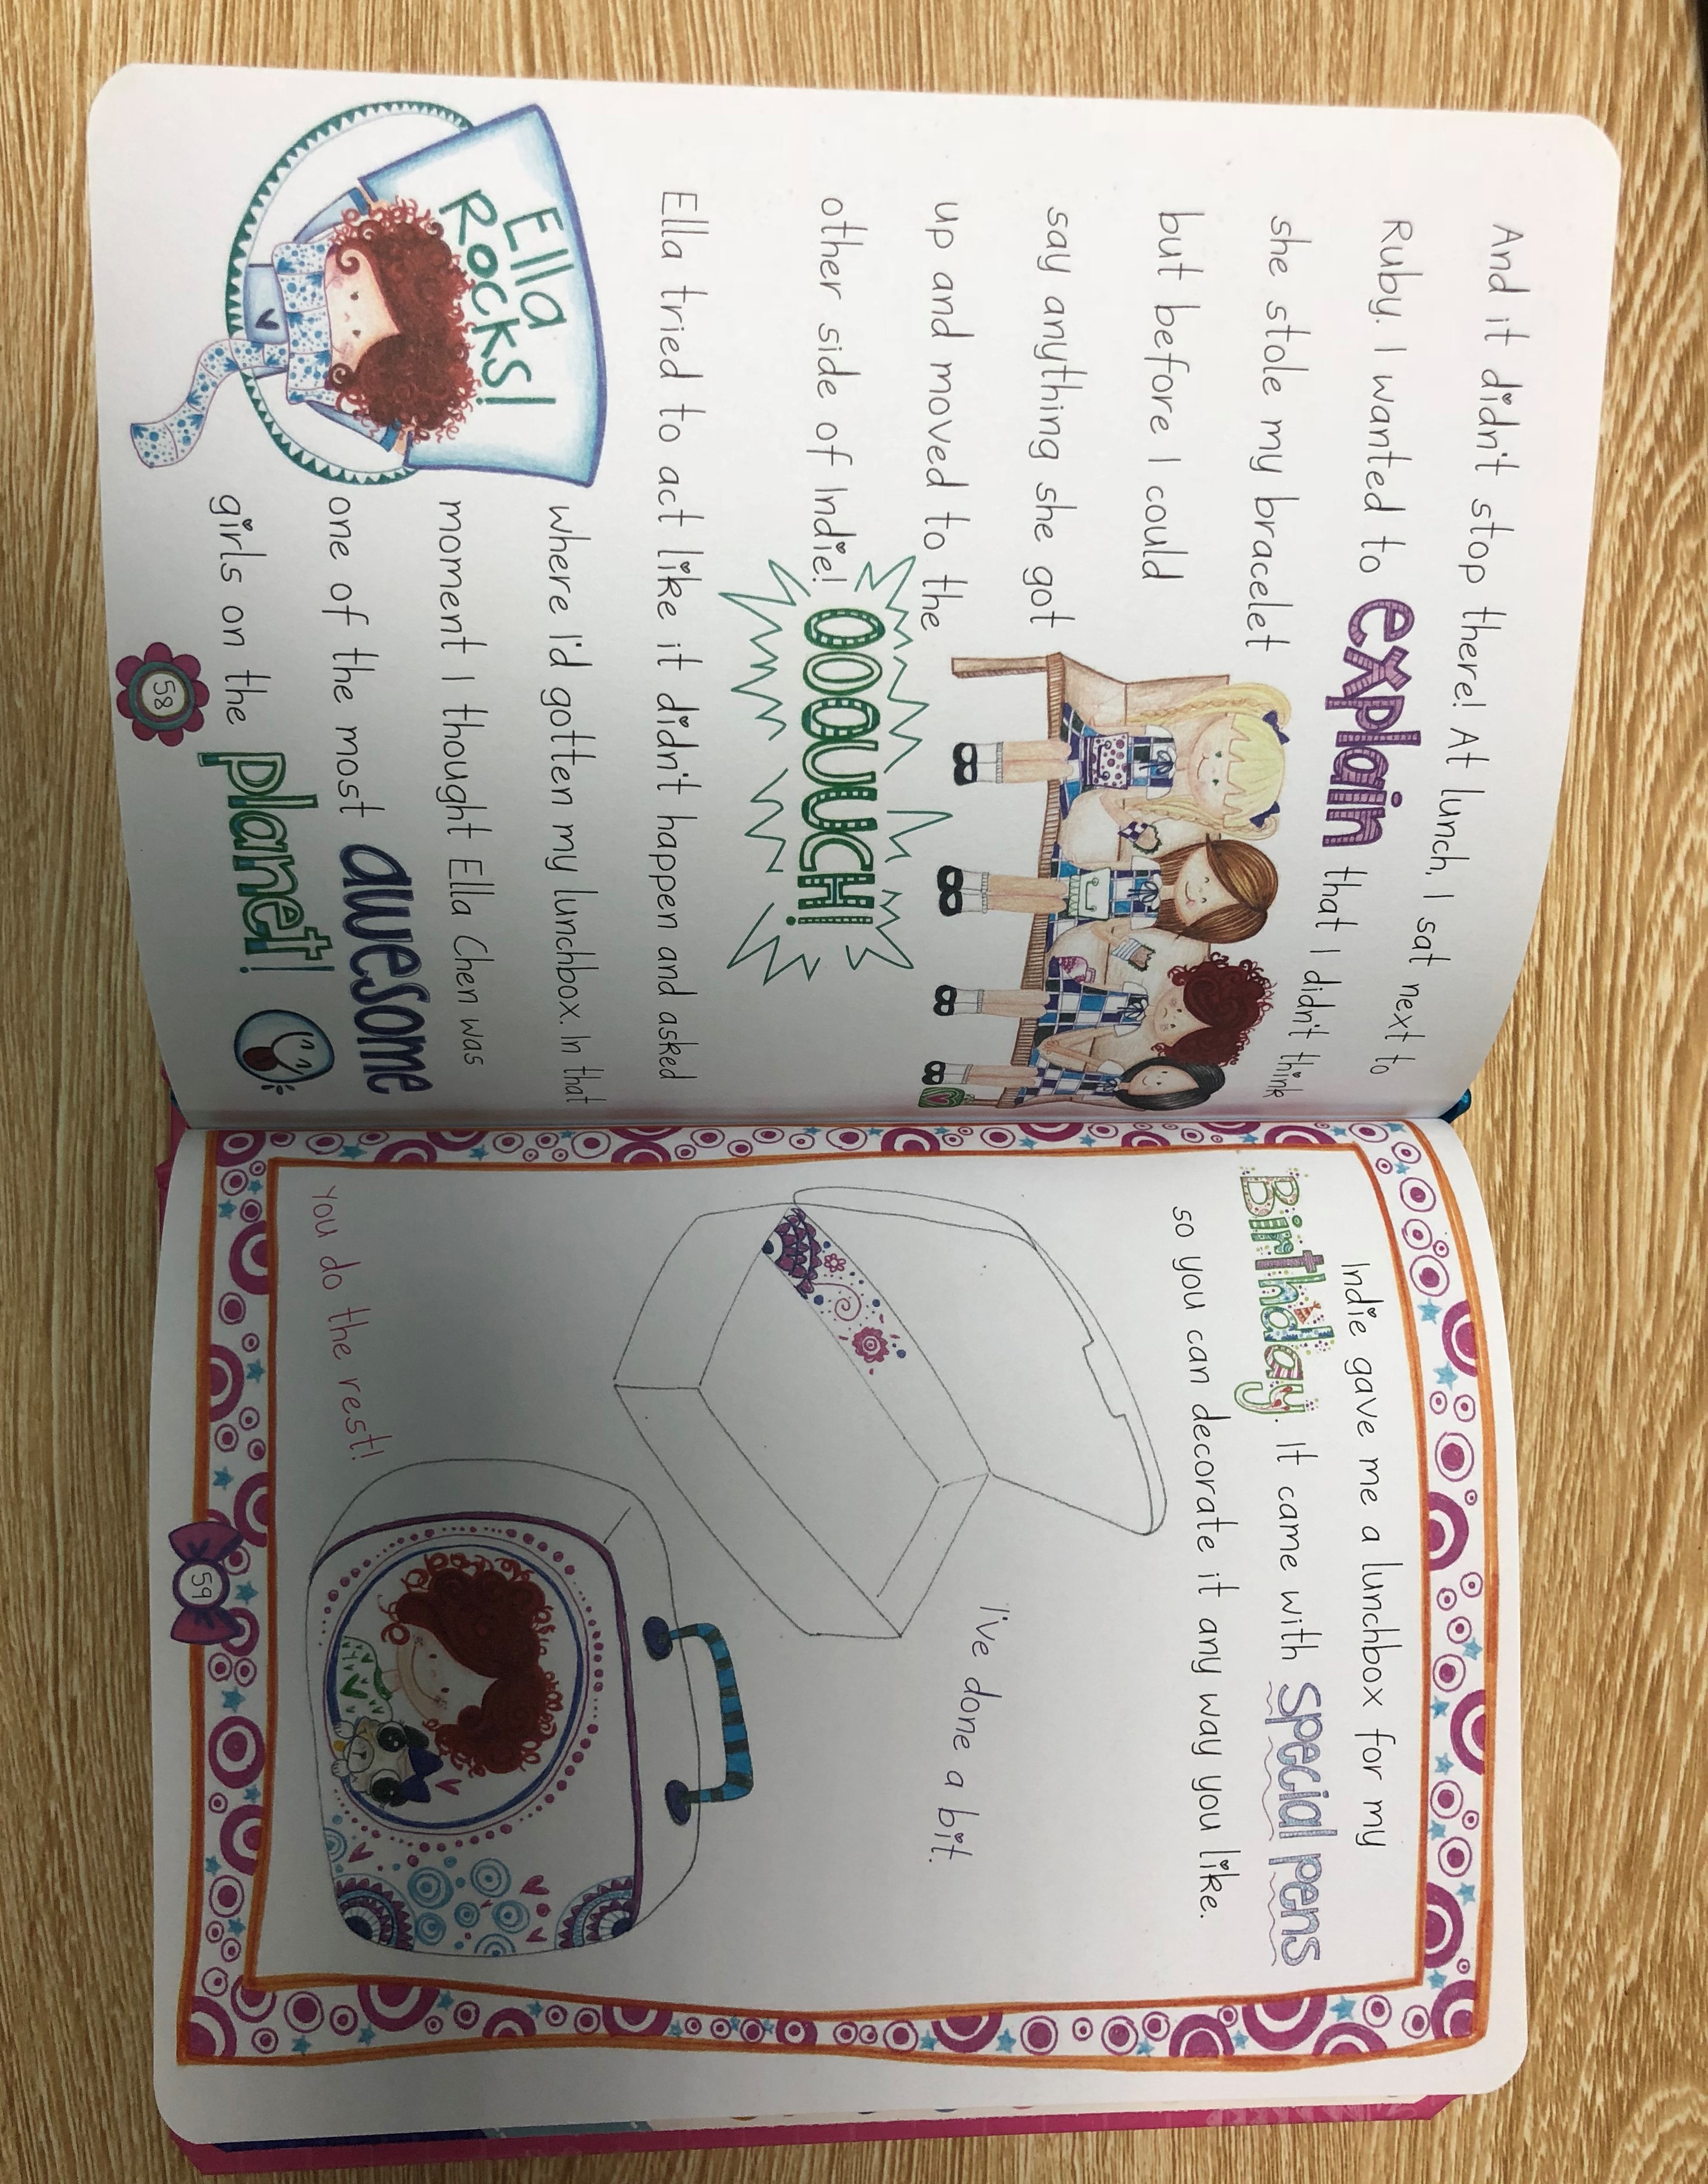 And it didn't stop there! At lunch, I sat next to
Ruby. I wanted to explain that I didn't think
she stole my bracelet
but before I could
say anything she got
up and moved to the
other side of Indie!
OOOUUUCH!
Ella tried to act like it didn't happen and asked
where I'd gotten my lunchbox. In that
moment I thought Ella Chen was
one of the most awesome
girls on the planet!
Ella
Rocks!
58
Indie gave me a lunchbox for my
Birthday. It came with special pens
so you can decorate it any way you like.
I've done a bit.
You do the rest!
59